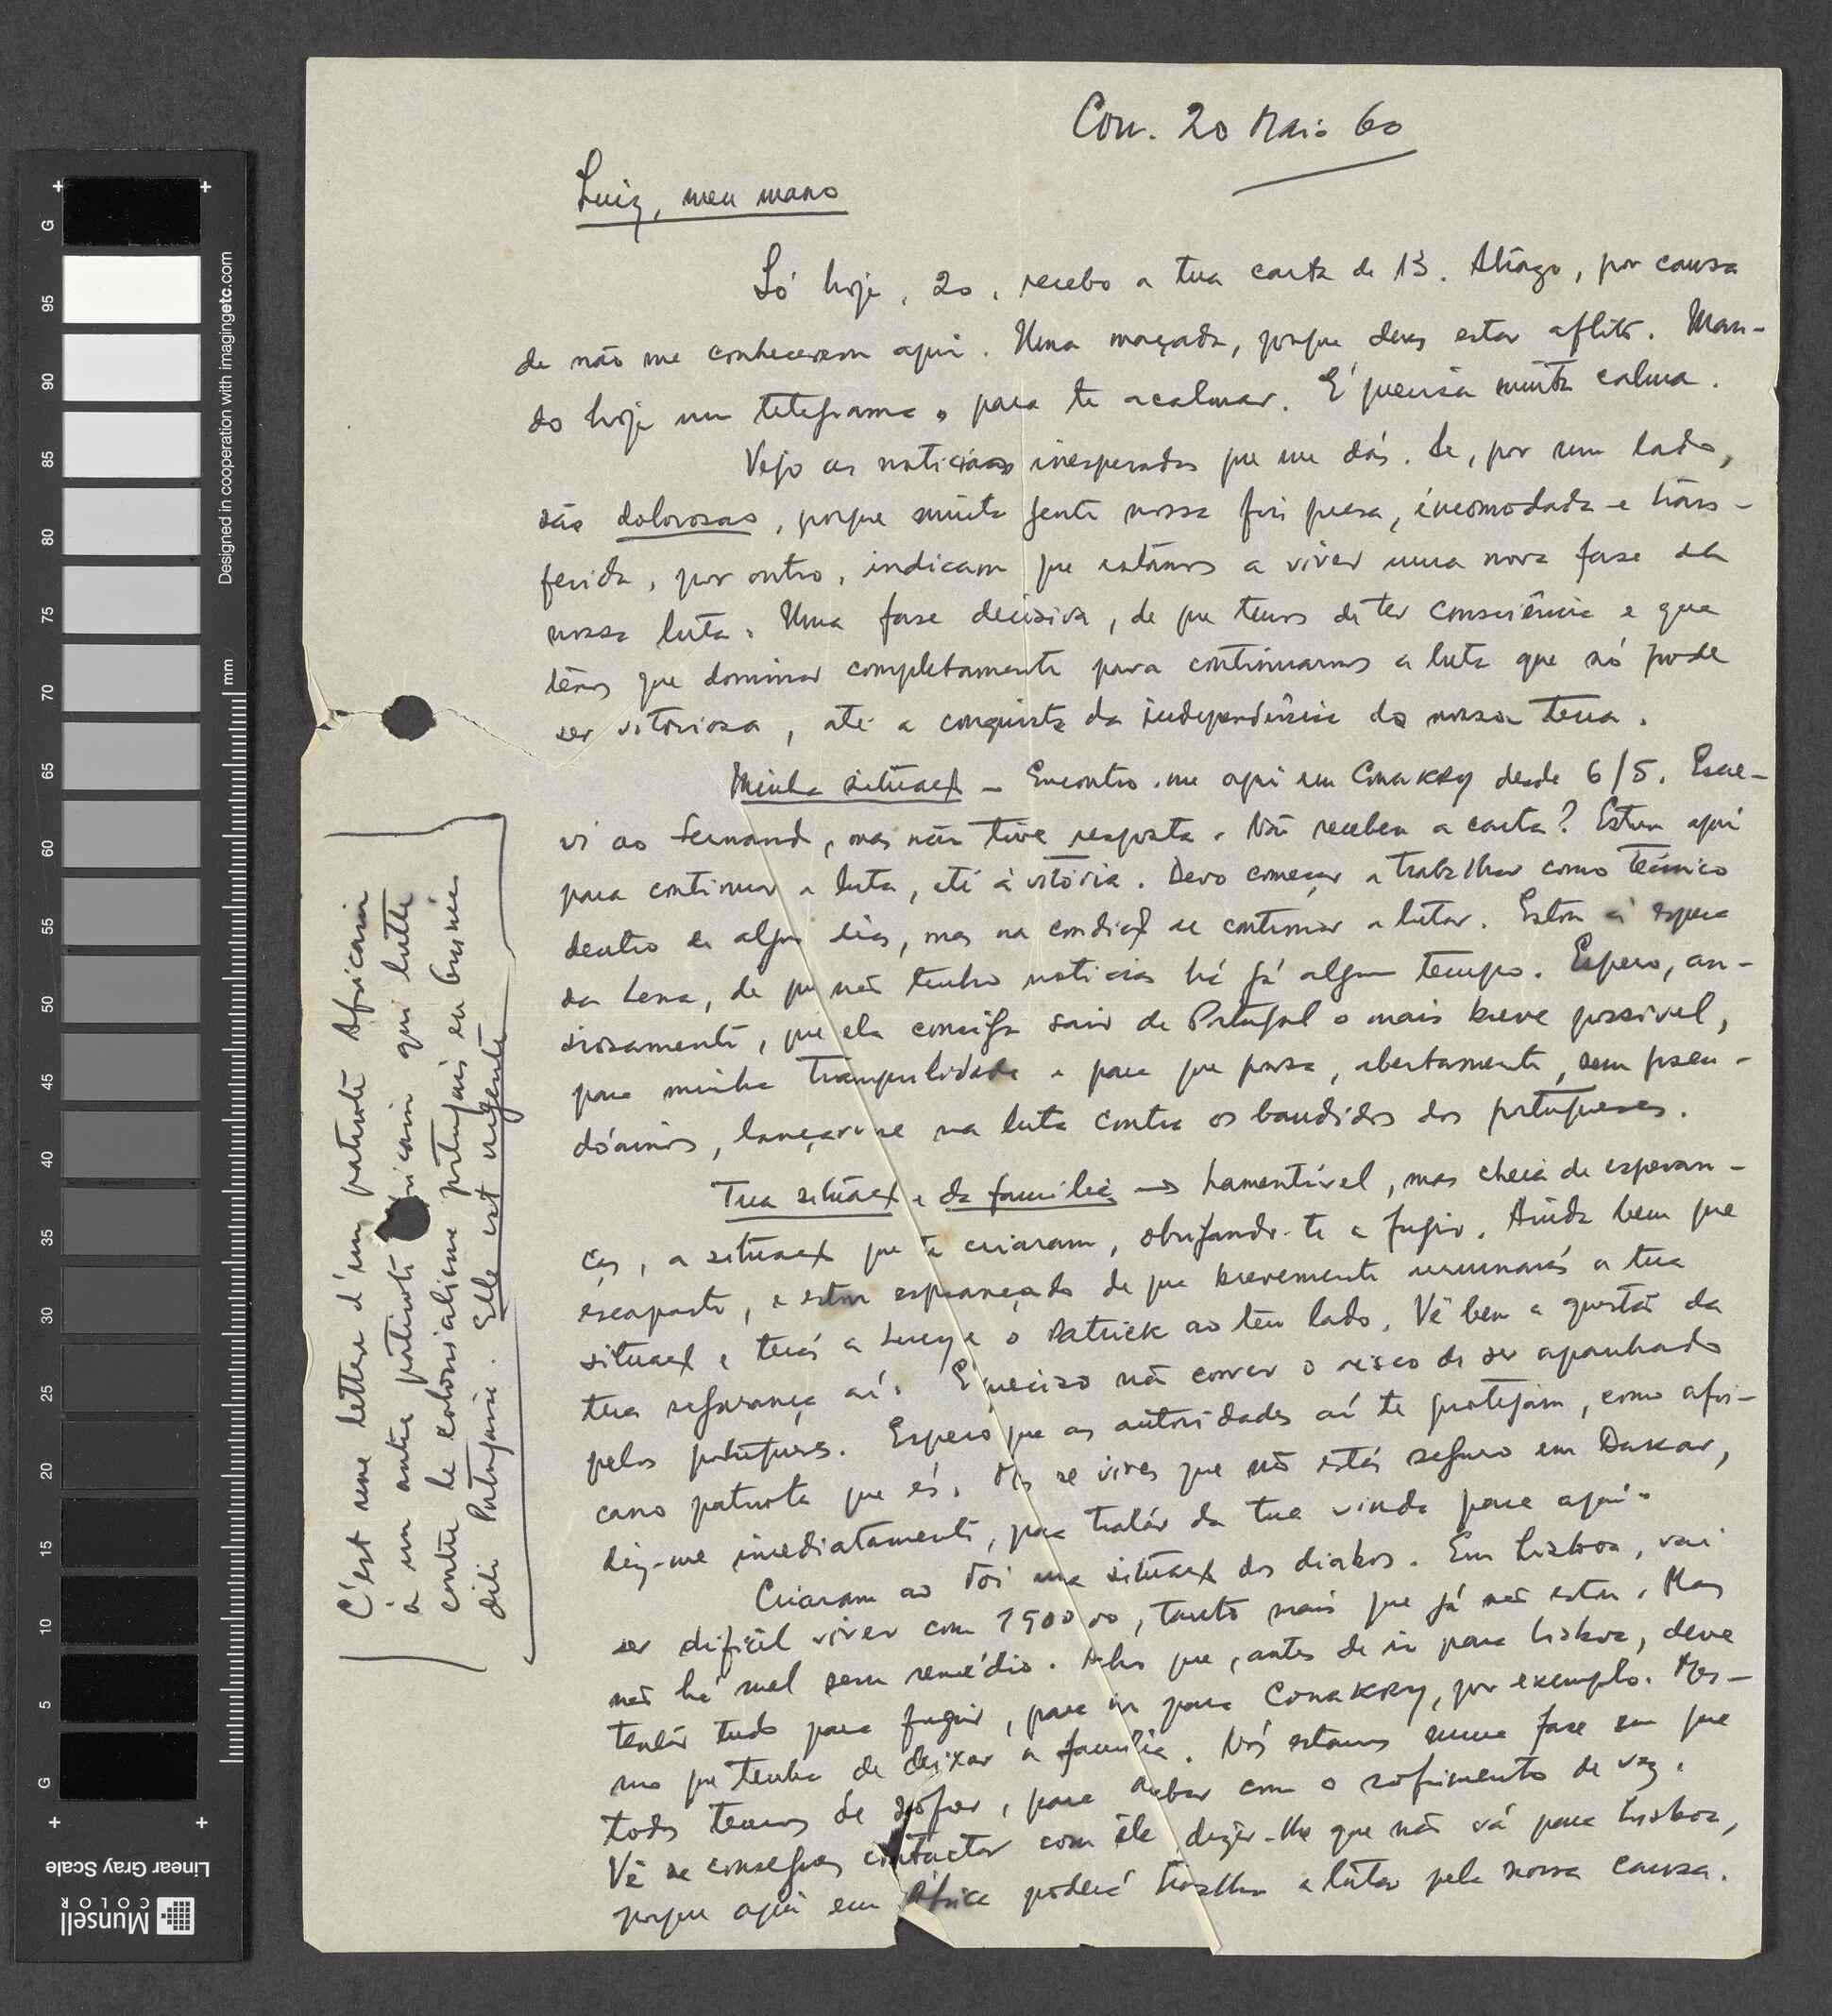 Con. 20 Maio 60
Luiz, meu mano
Só hoje, 20, recebo a tua carta de 13. Atrazo, por causa
de não me conhecerem aqui. Uma maçada, porque deves estar aflito. Man-
do hoje um telegrama, para te acalmar. É precisa muita calma.
Vejo as noticias inesperadas que me dás. Se, por um lado,
são dolorosas, porque muita gente nossa foi presa, incomodada e trans-
ferida, por outro, indicam que estamos a viver uma nova fase da
nossa luta. Uma fase decisiva, de que temos de ter consciência e que
temos que dominar completamente para continuarmos a luta que só pode
ser vitoriosa, até a conquista da independência da nossa terra.
Minha situaç — Encontro-me aqui em Conakry desde 6/5. Escre-
vi ao Fernand, mas não tive resposta. Não recebeu a carta? Estou aqui
para continuar a luta, até à vitória. Devo começar a trabalhar como técnico
dentro de alguns dias, mas na condiç de continuar a lutar. Estou à espera
da Lena, de que não tenho noticias há já algum tempo. Espero, an-
siosamente, que ela consiga sair de Portugal o mais breve possivel,
para minha tranquilidade e para que possa, abertamente, sem pseu-
dónimos, lançar-me na luta contra os bandidos dos portugueses.
Tua situaç e da familia → Lamentável, mas cheia de esperan-
ças, a situaç que te criaram, obrigando-te a fugir. Ainda bem que
escapaste, e estou esperançado de que brevemente arrumarás a tua
situaç e terás a Lucy e o Patrick ao teu lado. Vê bem a questão da
tua segurança aí. É preciso não correr o risco de ser apanhado
pelos portugueses. Espero que as autoridades aí te protejam, como afri-
cano patriota que és. Mas se vires que não estás seguro em Dakar,
diz-me imediatamente, para tratár da tua vinda para aqui.
Criaram ao Tói uma situaç dos diabos. Em Lisboa, vai
ser dificil viver com 1500 00, tanto mais que já não estou. Mas
não há mal sem remédio. Acho que, antes de ir para Lisboa, deve
tentár tudo para fugir, para ir para Conakry, por exemplo. Mes-
mo que tenha de deixar a familia. Nós estamos numa fase em que
todos temos de sofrer, para acabar com o sofrimento de vez.
Vê se consegues contactar com êle dizer-lhe que não vá para Lisboa,
porque aqui em África poderá trabalhar e lutar pela nossa causa.
C'est une lettre d'un patriote Africain
à un autre patriote Africain qui lutte
contre le colonialisme portugais en Guinée
dite Portugaise. Elle est urgente
Designed in cooperation with imagingetc.com
mm
G
95
90
85
80
75
70
65
60
55
50
45
40
35
30
25
20
15
10
5
G
Linear Gray Scale
Munsell
COLOR